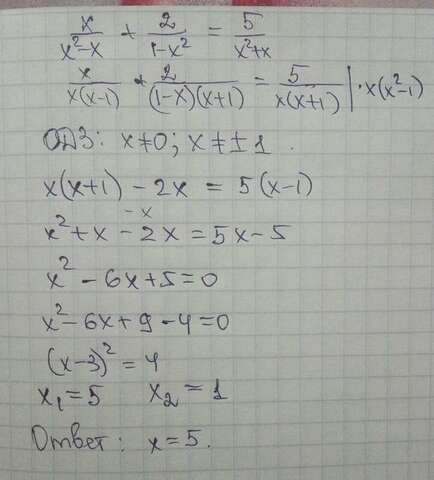 x/(x²-x) + 2/(1-x²) = 5/(x²+x)
x/(x(x-1)) + 2/((1-x)(x+1)) = 5/(x(x+1)) | ·x(x²-1)
ОДЗ: x≠0; x≠±1.
x(x+1) - 2x = 5(x-1)
-x
x²+x-2x=5x-5
x²-6x+5=0
x²-6x+9-4=0
(x-3)²=4
x₁=5 x₂=1
Ответ: x=5.